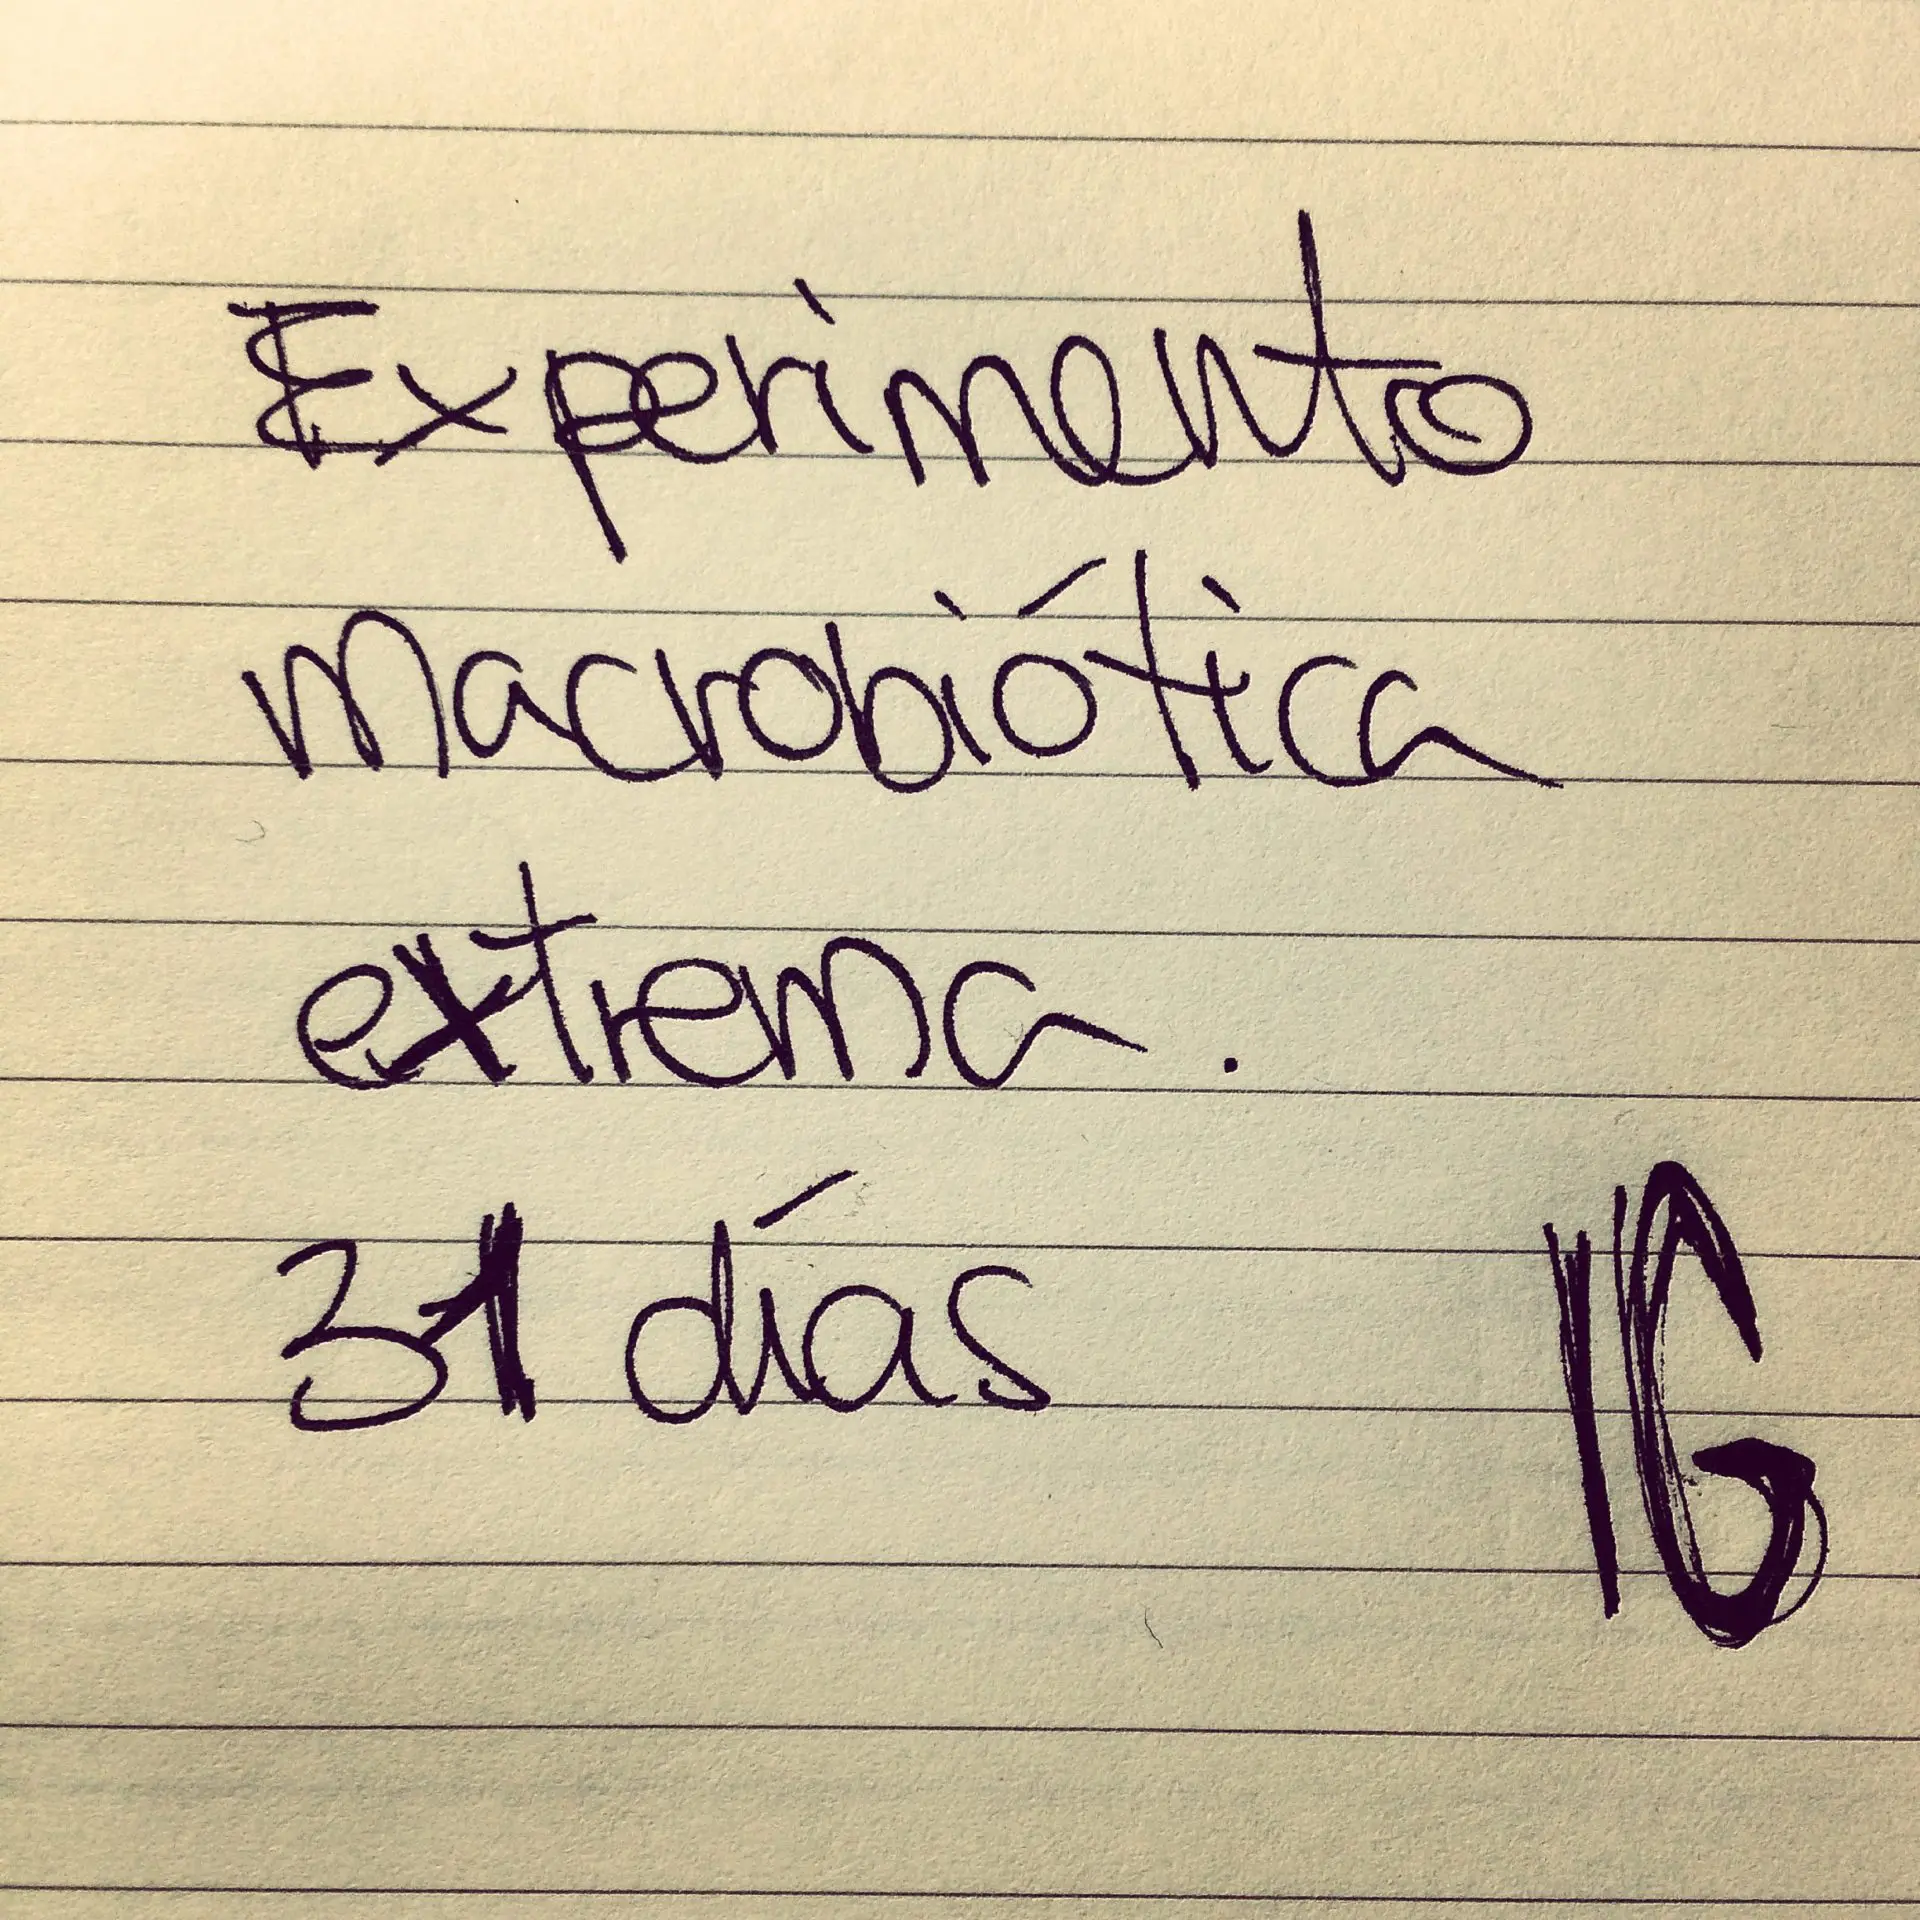 Experimento
macrobiótica
extrema.
31 días
16